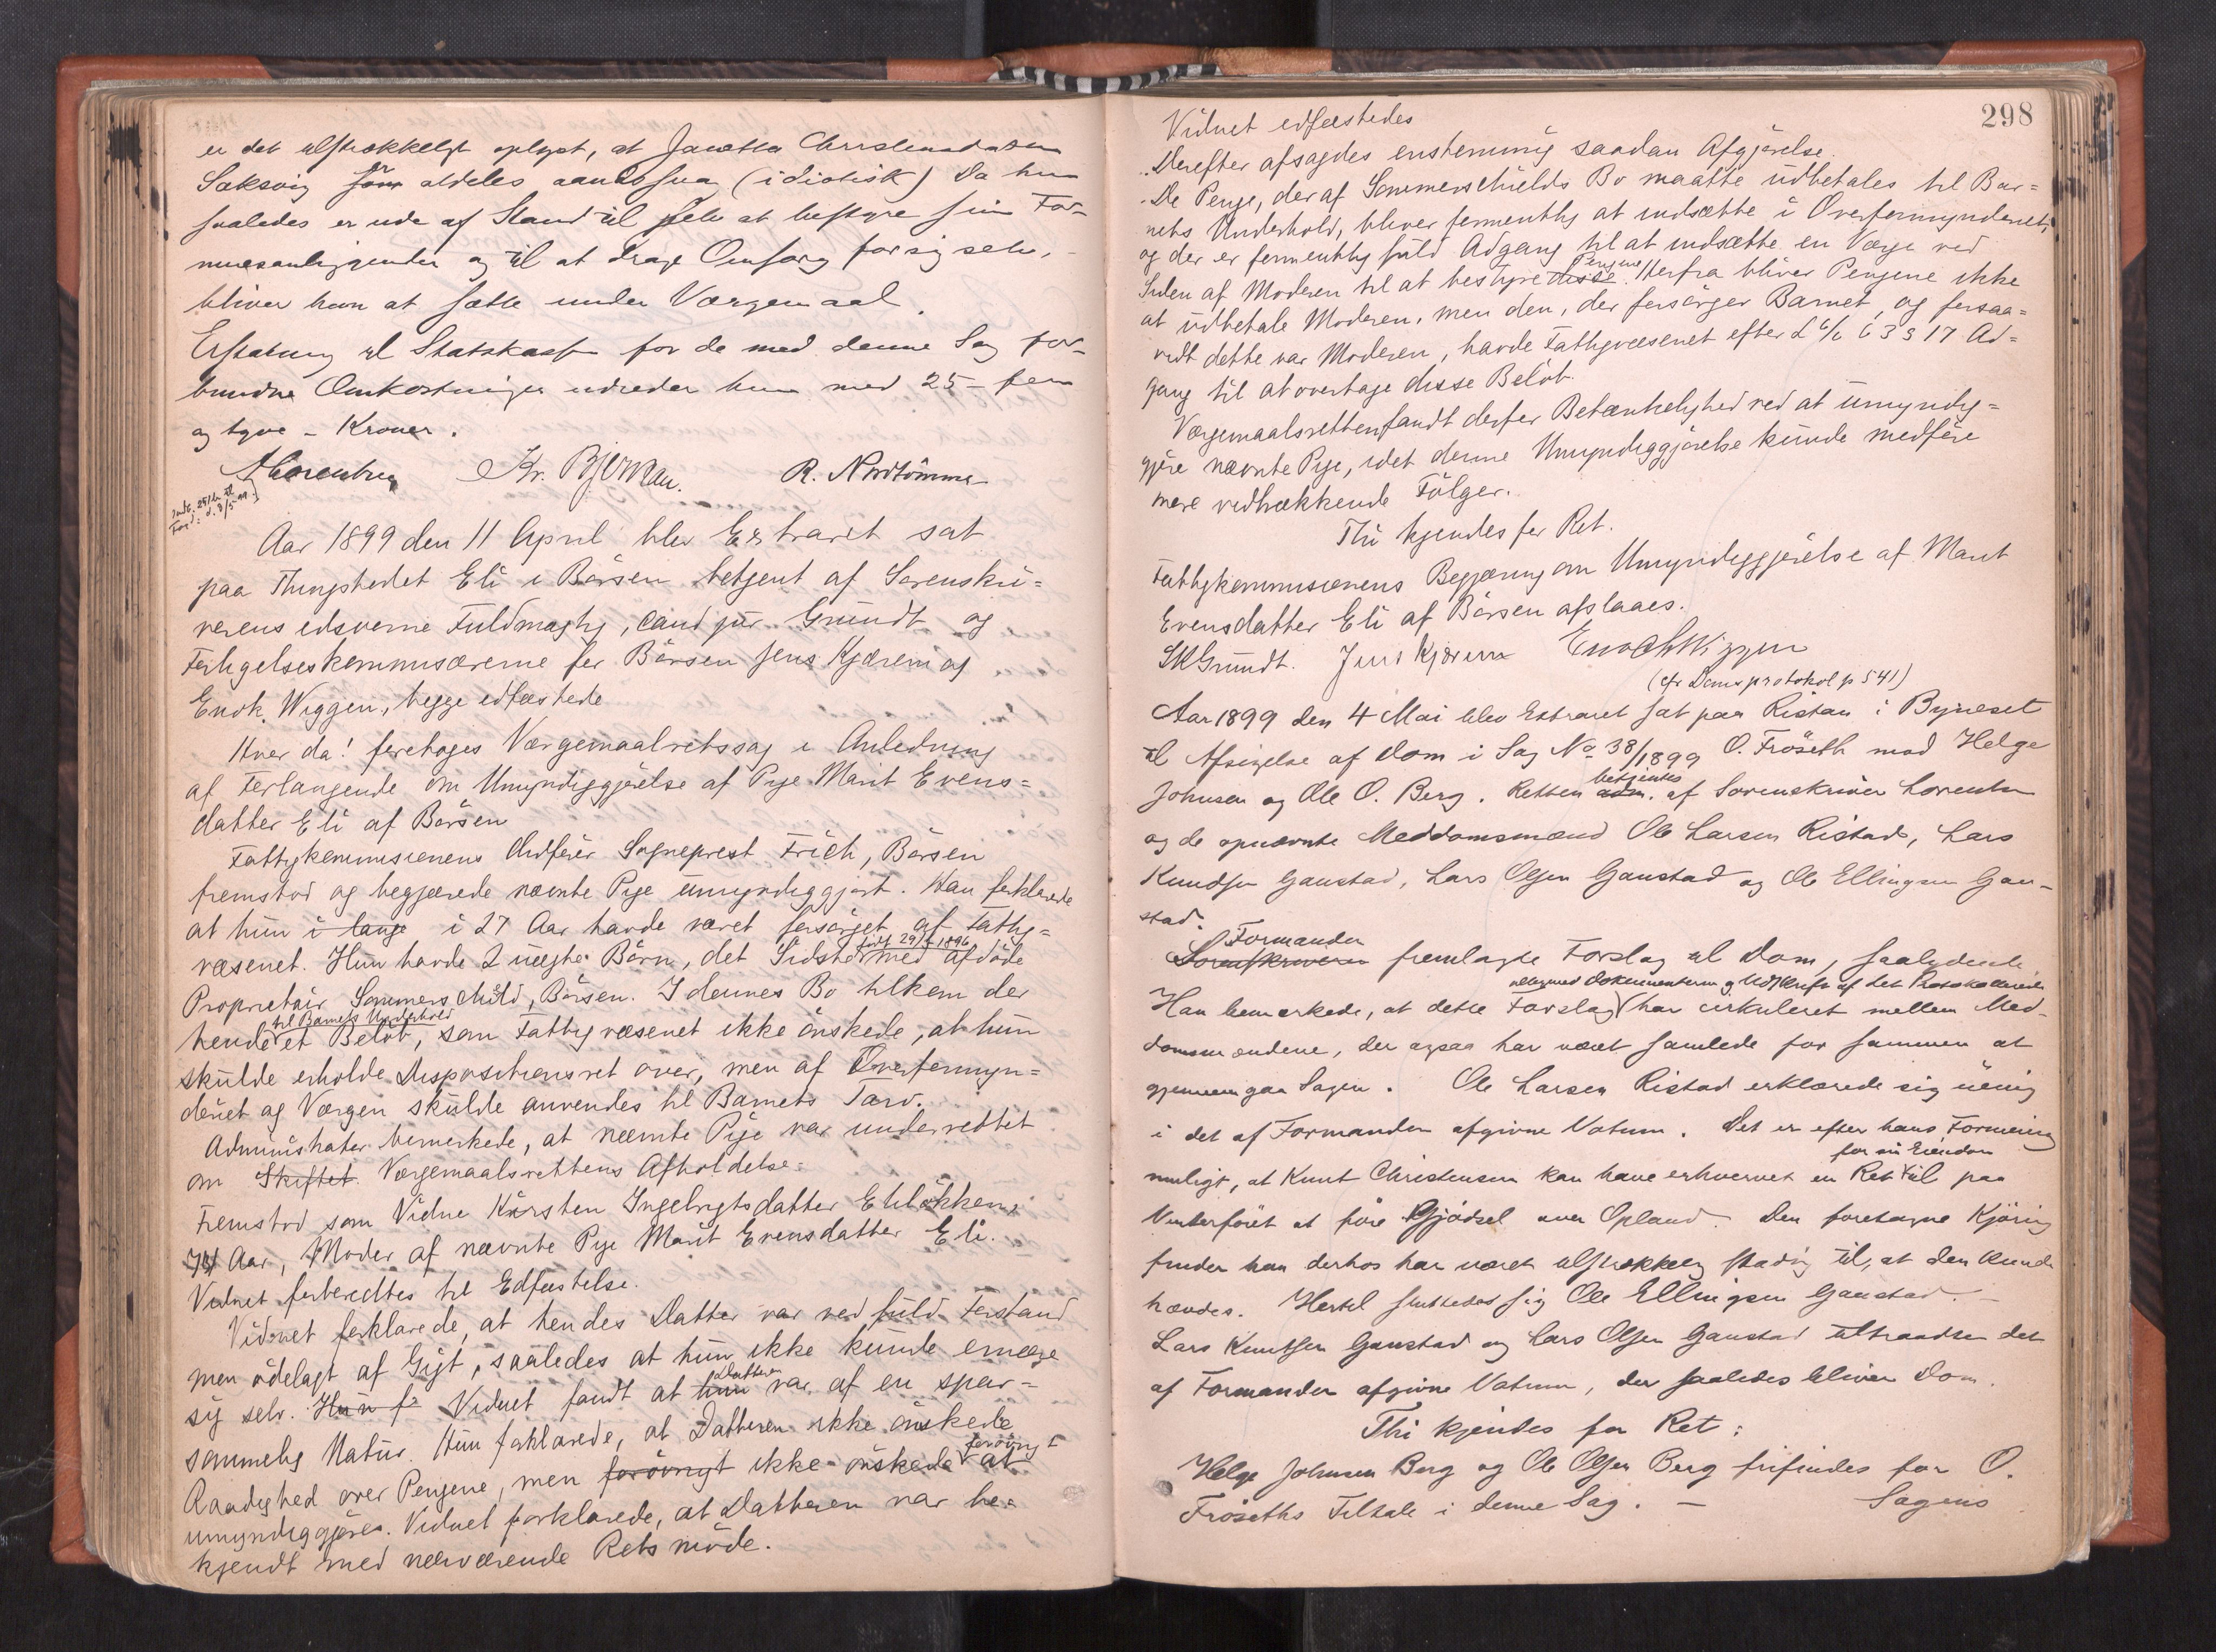 er det tilstrækkeligt oplyst, at Janetta Christensdatter
Saksvig som aldeles aandssvag (idiotisk) Da hun
saaledes er ude af Stand til selv at bestyre sine For-
muesanliggender og til at drage Omsorg for sig selv,
bliver hun at sætte under Værgemaal.
Erstatning til Statskassen for de med denne Sag for-
bundne Omkostninger udreder hun med 25 - fem
og tyve - Kroner.
Kr. Bjerkan. R. Nordtömme
Aar 1899 den 11 April blev Extraret sat
paa Thingstedet Eli i Börsen betjent af Sorenskri=
verens edsvorne Fuldmægtig, cand jur Grundt og
Forligelseskommissærerne for Börsen Jens Kjærem og
Enok Wiggen, begge edfæstede
Hvor da! foretoges Værgemaalsretssag i Anledning
af Forlangende om Umyndiggjörelse af Pige Marit Evens=
datter Eli af Börsen
Fattigkommissionens Ordförer Sogneprest Frich, Börsen
fremstod og begjærede nævnte Pige umyndiggjort. Han forklarede
at hun i lange i 27 Aar havde været forsörget af Fattig=
væsenet. Hun havde 2 uægte Börn, det Sidste med afdöde
Proprietær Sommerschild, Börsen. I dennes Bo tilkom der
til Barnets Underhold
hende et Belöb, som Fattigvæsenet ikke önskede, at hun
skulde erholde Dispositionsret over, men af Overformyn=
deriet og Værgen skulde anvendes til Barnets Tarv.
Administrator bemerkede, at nævnte Pige var underrettet
om Skiftet Værgemaalsrettens Afholdelse.
Fremstod som Vidne Kirsten Ingebrigtsdatter Elilökken,
Aar, Moder af nævnte Pige Marit Evensdatter Eli.
Vidnet forberedtes til Edfæstelse.
Vidnet forklarede, at hendes Datter var ved fuld Forstand
men ödelagt af Gigt, saaledes at hun ikke kunde ernære
Datteren
sig selv. Hun f Vidnet fandt at hun var af en spar=
sommelig Natur. Hun forklarede, at Datteren ikke önskede
forövrigt
Raadighed over Pengene, men forövrigt ikke önskede at
umyndiggjöres. Vidnet forklarede, at Datteren var be=
kjendt med nærværende Retsmöde.
298
Vidnet edfæstedes
Derefter afsagdes enstemmig saadan Afgjörelse.
De Penge, der af Sommerschields Bo maatte udbetales til Bar=
nets Underhold, bliver formentlig at indsætte i Overformynderiet,
og der er formentlig fuld Adgang til at indsætte en Værge ved
Pengene
Siden af Moderen til at bestyre disse. Herfra bliver Pengene ikke
at udbetale Moderen, men den, der forsörger Barnet, og forsaa=
vidt dette var Moderen, havde Fattigvæsenet efter L 6/6 63 § 17 Ad=
gang til at overtage disse Belöb.
Værgemaalsretten fandt derfor Betænkelighed ved at umyndig=
gjöre nævnte Pige, idet denne Umyndiggjörelse kunde medföre
mere vidtrækkende Fölger.
Thi kjendes for Ret.
Fattigkommissionens Begjæring om Umyndiggjörelse af Marit
Evensdatter Eli af Börsen afslaaes.
SKGrundt. Jens Kjærem Enoch Wiggen
(cfr Domsprotokol p 541)
Aar 1899 den 4 Mai blev Extraret sat paa Ristan i Byneset
til Afsigelse af Dom i Sag No 38/1899 O. Fröseth mod Helge
betjentes
Johnsen og Ole O. Berg. Retten adm. af Sorenskriver Lorentzen
og de opnævnte Meddomsmænd Ole Larsen Ristad, Lars
Knudsen Gaustad, Lars Olsen Gaustad og Ole Ellingsen Gau-
stad.
Formanden
Sorenskriveren fremlagte Forslag til Dom, saalydende
tilligemed Dokumenterne og Udskrift af det Protokollerede
Han bemærkede, at dette Forslag har cirkuleret mellem Med-
domsmændene, der ogsaa har været samlede for sammen at
gjennemgaa Sagen. Ole Larsen Ristad erklærede sig uenig
i det af Formanden afgivne Votum. Det er efter hans Formening
for sin Eiendom
muligt, at Knut Christensen kan have erhvervet en Ret til paa
Vinterföret at före Gjödsel over Opland. Den foretagne Kjöring
finder han derhos har været tilstrækkelig stadig til, at den kunde
hævdes. Hertil sluttedes sig Ole Ellingsen Gaustad.
Lars Knutsen Gaustad og Lars Olsen Gaustad tiltraadte det
af Formanden afgivne Votum, der saaledes bliver Dom.
Thi kjendes for Ret:
Helge Johnsen Berg og Ole Olsen Berg frifindes for O.
Fröseths Tiltale i denne Sag. - Sagens